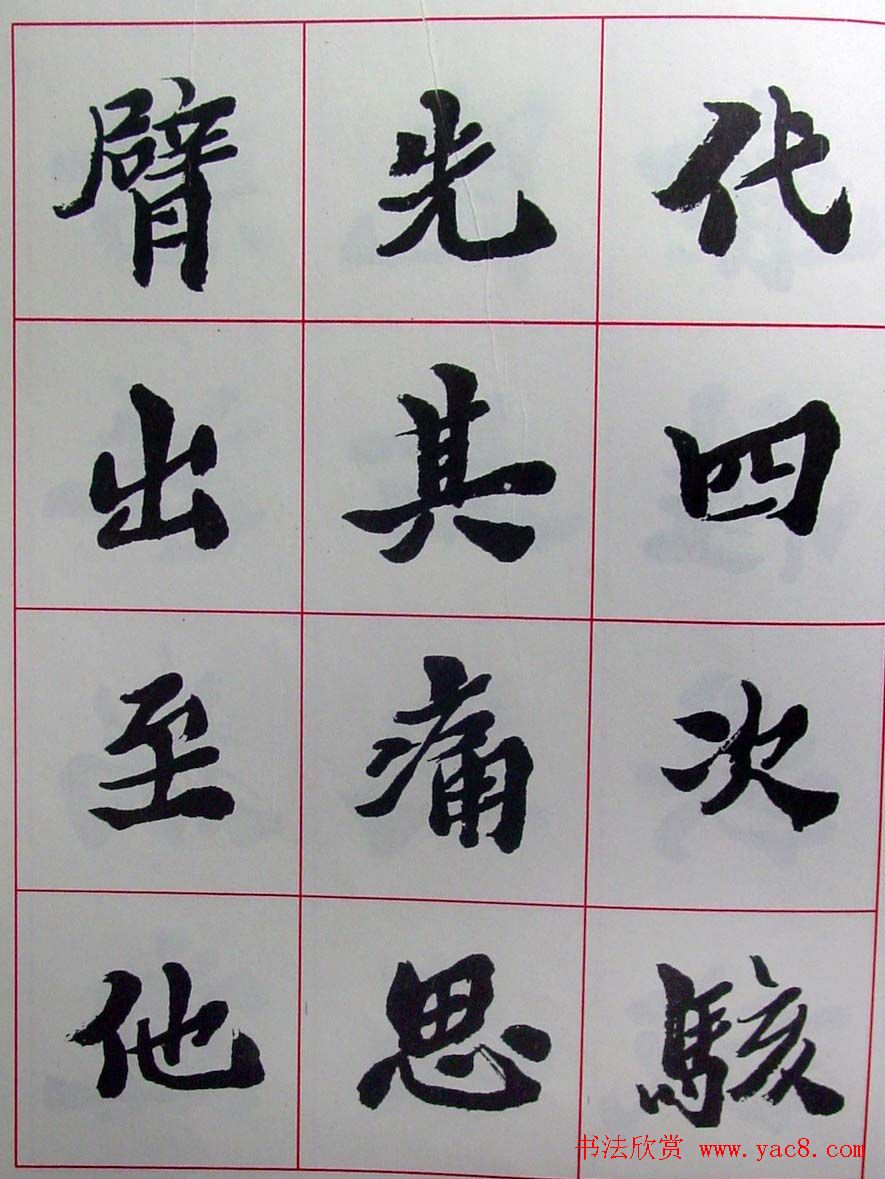 代四次駭
先其痛思
臂出至他
书法欣赏 www.yac8.com